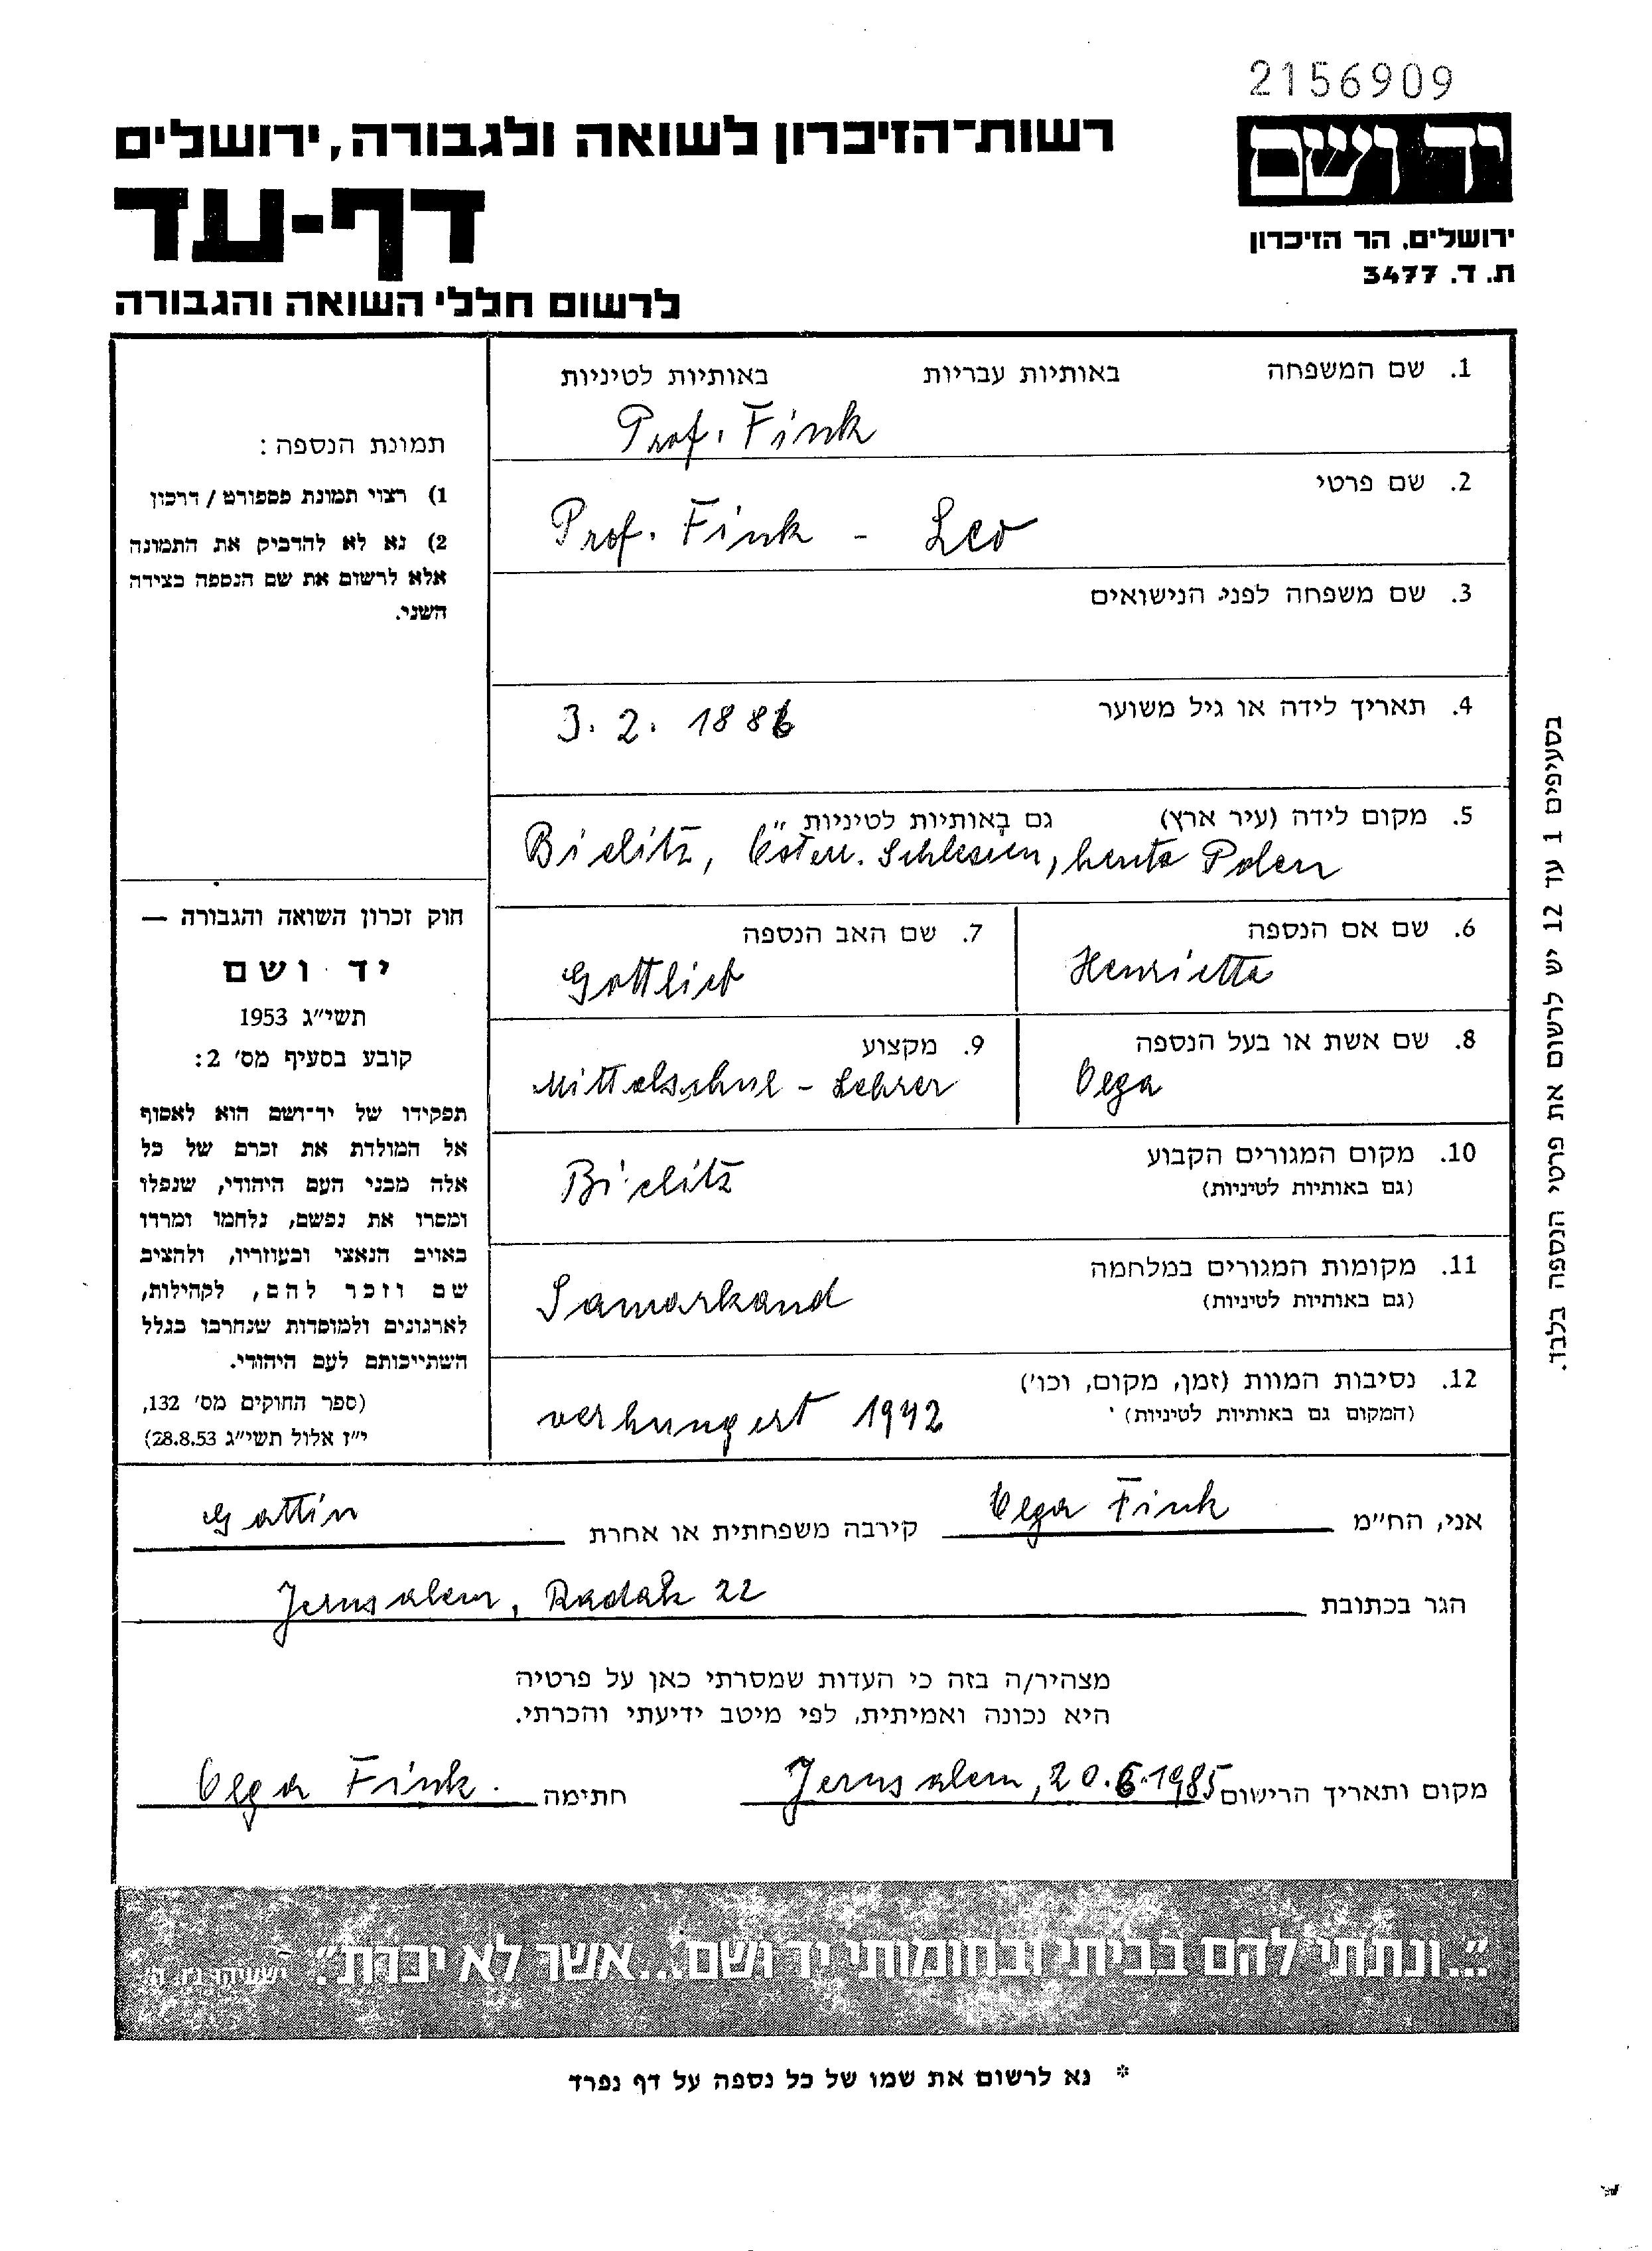 2156909
יד ושם
ירושלים, הר הזיכרון
ת. ד. 3477
רשות־הזיכרון לשואה ולגבורה, ירושלים
דף-עד
לרשום חללי השואה והגבורה
1. שם המשפחה באותיות עבריות באותיות לטיניות
Prof. Fink
2. שם פרטי
Prof. Fink - Leo
3. שם משפחה לפני הנישואים
4. תאריך לידה או גיל משוער
3. 2. 1886
5. מקום לידה (עיר ארץ) גם באותיות לטיניות
Bielitz, Österr. Schlesien, heute Polen
6. שם אם הנספה
Henriette
7. שם האב הנספה
Gottlieb
8. שם אשת או בעל הנספה
Olga
9. מקצוע
Mittelschul-Lehrer
10. מקום המגורים הקבוע
(גם באותיות לטיניות)
Bielitz
11. מקומות המגורים במלחמה
(גם באותיות לטיניות)
Samarkand
12. נסיבות המוות (זמן, מקום, וכו')
(המקום גם באותיות לטיניות)
verhungert 1942
תמונת הנספה:
1) רצוי תמונת פספורט / דרכון
2) נא לא להדביק את התמונה
אלא לרשום את שם הנספה בצידה
השני.
חוק זכרון השואה והגבורה —
יד ושם
תשי"ג 1953
קובע בסעיף מס' 2:
תפקידו של יד־ושם הוא לאסוף
אל המולדת את זכרם של כל
אלה מבני העם היהודי, שנפלו
ומסרו את נפשם, נלחמו ומרדו
באויב הנאצי ובעוזריו, ולהציב
שם וזכר להם, לקהילות,
לארגונים ולמוסדות שנחרבו בגלל
השתייכותם לעם היהודי.
(ספר החוקים מס' 132,
י"ז אלול תשי"ג 28.8.53)
בסעיפים 1 עד 12 יש לרשום את פרטי הנספה בלבד.
אני, הח"מ Olga Fink קירבה משפחתית או אחרת Gattin
הגר בכתובת Jerusalem, Radak 22
מצהיר/ה בזה כי העדות שמסרתי כאן על פרטיה
היא נכונה ואמיתית, לפי מיטב ידיעתי והכרתי.
מקום ותאריך הרישום Jerusalem, 20.6.1985 חתימה Olga Fink.
"...ונתתי להם בביתי ובחומותי יד ושם...אשר לא יכרת". ישעיהו נו, ה'
* נא לרשום את שמו של כל נספה על דף נפרד